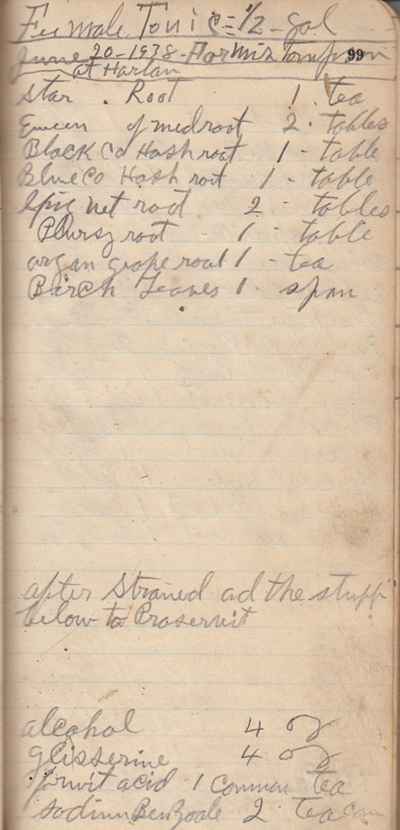 Feemale Tonic = 1/2 - gal
June 20 - 1938 - For Mis 99
at Harlan
Star . Root 1 . tea
Queen of medroot 2 . tables
Black Co Hash root 1 - table
Blue Co Hash root 1 - table
Spic net root 2 - tables
Plursy root 1 - table
argan grape root 1 - tea
Birch Leaves 1 .
after Strained ad the stuff
below to Preservit
alcohol 4 oz
glisserine 4 oz
fruit acid 1 Common tea
Sodium Benzoate 2 . tea